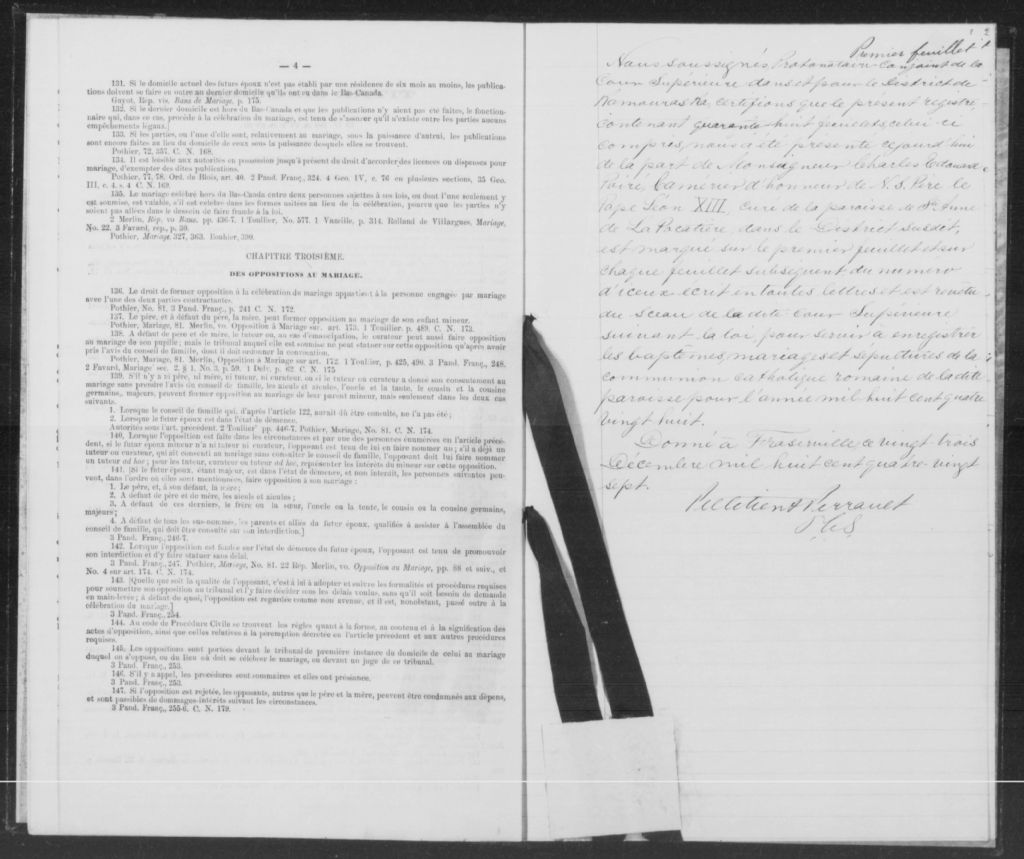 — 4 —
131. Si le domicile actuel des futurs époux n'est pas établi par une résidence de six mois au moins, les publica-
tions doivent se faire en outre au dernier domicile qu'ils ont eu dans le Bas-Canada.
Guyot, Rép. vis. Bans de Mariage, p. 175.
132. Si le dernier domicile est hors du Bas-Canada et que les publications n'y aient pas été faites, le fonction-
naire qui, dans ce cas, procède à la célébration du mariage, est tenu de s'assurer qu'il n'existe entre les parties aucun
empêchements légaux.]
133. Si les parties, ou l'une d'elle sont, relativement au mariage, sous la puissance d'autrui, les publications
sont encore faites au lieu du domicile de ceux sous la puissance desquels elles se trouvent.
Pothier, 72, 357. C. N. 168.
134. Il est loisible aux autorités en possession jusqu'à présent du droit d'accorder des licences ou dispenses pour
mariage, d'exempter des dites publications.
Pothier, 77, 78. Ord. de Blois, art. 40. 2 Pand. Franç., 324. 4 Geo. IV, c. 76 en plusieurs sections, 35 Geo.
III, c. 4. s. 4 C. N. 169.
135. Le mariage célébré hors du Bas-Canada entre deux personnes sujettes à ses lois, ou dont l'une seulement y
est soumise, est valable, s'il est célébré dans les formes usitées au lieu de la célébration, pourvu que les parties n'y
soient pas allées dans le dessein de faire fraude à la loi.
2 Merlin, Rép. vo Bans. pp. 436-7. 1 Toulier, No. 577. 1 Vazeille, p. 314. Rolland de Villargues, Mariage,
No. 22. 3 Favard, rep., p. 39.
Pothier, Mariage, 327, 363. Bouhier, 390.
CHAPITRE TROISIÈME.
DES OPPOSITIONS AU MARIAGE.
136. Le droit de former opposition à la célébration du mariage appartient à la personne engagée par mariage
avec l'une des deux parties contractantes.
Pothier, No. 81. 3 Pand. Franç., p. 241 C. N. 172.
137. Le père, et à défaut du père, la mère, peut former opposition au mariage de son enfant mineur.
Pothier, Mariage, 81. Merlin, vo. Opposition à Mariage sur. art. 173. 1 Toullier. p. 489. C. N. 173.
138. A défaut de père et de mère, le tuteur ou, au cas d'émancipation, le curateur peut aussi faire opposition
au mariage de son pupille; mais le tribunal auquel elle est soumise ne peut statuer sur cette opposition qu'après avoir
pris l'avis du conseil de famille, dont il doit ordonner la convocation.
Pothier, Mariage, 81. Merlin, Opposition à Mariage sur art. 172. 1 Toullier, p. 425, 496. 3 Pand. Franç., 248.
2 Favard, Mariage sec. 2. § 1. No. 3. p. 59. 1 Delv. p. 62. C. N. 175
139. S'il n'y a ni père, ni mère, ni tuteur, ni curateur, ou si le tuteur ou curateur a donné son consentement au
mariage sans prendre l'avis du conseil de famille, les aïeuls et aïeules, l'oncle et la tante, le cousin et la cousine
germains, majeurs, peuvent former opposition au mariage de leur parent mineur, mais seulement dans les deux cas
suivants.
1. Lorsque le conseil de famille qui, d'après l'article 122, aurait dû être consulté, ne l'a pas été;
2. Lorsque le futur époux est dans l'état de démence.
Autorités sous l'art. précédent. 2 Toullier pp. 446-7. Pothier, Mariage, No. 81. C. N. 174.
140. Lorsque l'opposition est faite dans les circonstances et par une des personnes énumérées en l'article précé-
dent, si le futur époux mineur n'a ni tuteur ni curateur, l'opposant est tenu de lui en faire nommer un; s'il a déjà un
tuteur ou curateur, qui ait consenti au mariage sans consulter le conseil de famille, l'opposant doit lui faire nommer
un tuteur ad hoc; pour les tuteur, curateur ou tuteur ad hoc, représenter les intérêts du mineur sur cette opposition.
141. [Si le futur époux, étant majeur, est dans l'état de démence, et non interdit, les personnes suivantes peu-
vent, dans l'ordre où elles sont mentionnées, faire opposition à son mariage :
1. Le père, et, à son défaut, la mère;
2. A défaut de père et de mère, les aïeuls et aïeules;
3. A défaut de ces derniers, le frère ou la sœur, l'oncle ou la tante, le cousin ou la cousine germains,
majeurs;
4. A défaut de tous les sus-nommés, les parents et alliés du futur époux, qualifiés à assister à l'assemblée du
conseil de famille, qui doit être consulté sur son interdiction.]
3 Pand. Franç., 246-7.
142. Lorsque l'opposition est fondée sur l'état de démence du futur époux, l'opposant est tenu de promouvoir
son interdiction et d'y faire statuer sans délai.
3 Pand. Franç., 247. Pothier, Mariage, No. 81. 22 Rép. Merlin, vo. Opposition au Mariage, pp. 88 et suiv., et
No. 4 sur art. 174. C. N. 174.
143. [Quelle que soit la qualité de l'opposant, c'est à lui à adopter et suivre les formalités et procédures requises
pour soumettre son opposition au tribunal et l'y faire décider sous les délais voulus, sans qu'il soit besoin de demande
en main-levée; à défaut de quoi, l'opposition est regardée comme non avenue, et il est, nonobstant, passé outre à la
célébration du mariage.]
3 Pand. Franç., 254.
144. Au code de Procédure Civile se trouvent les règles quant à la forme, au contenu et à la signification des
actes d'opposition, ainsi que celles relatives à la péremption décrétée en l'article précédent et aux autres procédures
requises.
145. Les oppositions sont portées devant le tribunal de première instance du domicile de celui au mariage
duquel on s'oppose, ou du lieu où doit se célébrer le mariage, ou devant un juge de ce tribunal.
3 Pand. Franç., 253.
146. S'il y a appel, les procédures sont sommaires et elles ont préséance.
3 Pand. Franç., 253.
147. Si l'opposition est rejetée, les opposants, autres que le père et la mère, peuvent être condamnés aux dépens,
et sont passibles de dommages-intérêts suivant les circonstances.
3 Pand. Franç., 255-6. C. N. 179.
Premier feuillet
Nous soussignés Protonotaire-Conjoint de la
Cour Supérieure dans et pour le District de
Kamouraska, certifions que le présent registre,
contenant quarante-huit feuillets celui-ci
compris, nous a été présenté ce jourd'hui
de la part de Monseigneur Charles Edouard
Poiré, Camérier d'honneur de N. S. Père le
Pape Léon XIII. curé de la paroisse de Ste Anne
de La Pocatière, dans le District susdit,
est marqué sur le premier feuillet et sur
chaque feuillet subséquent du numéro
d'iceux écrit en toutes lettres et est revêtu
du Sceau de la dite Cour Supérieure
suivant la loi pour servir à enregistrer
les baptêmes, mariages et sépultures de la
communion catholique romaine de la dite
paroisse pour l'année mil huit cent quatre
vingt huit.
Donné à Fraserville ce vingt trois
Décembre mil huit cent quatre-vingt
sept.
Pelletier & Perrault
P.C.S.